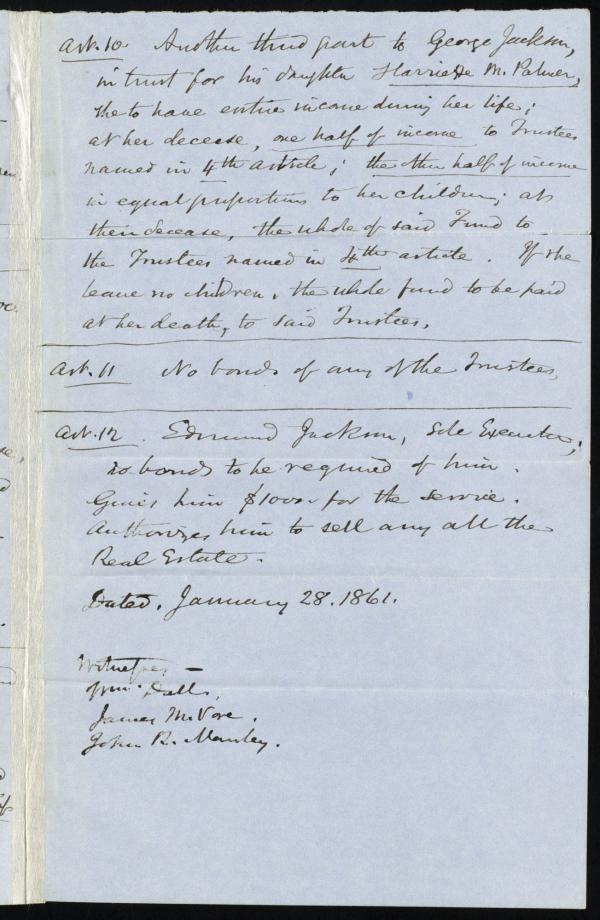 Art. 10 Another third part to George Jackson,
in trust for his daughter Harriette M. Palmer,
she to have entire income during her life;
at her decease, one half of income to Trustees
named in 4th article; the other half of income
in equal proportions to her children; at
their decease, the whole of said Fund to
the Trustees named in 4th article. If she
leave no children, the whole fund to be paid
at her death, to said Trustees.
Art. 11 No bonds of any of the Trustees,
Art. 12. Edmund Jackson, Sole Executor;
no bonds to be required of him.
Gives him $1000. for the service.
Authorizes him to sell any all the
Real Estate.
Dated, January 28. 1861.
Witnesses —
Wm. Dall,
James M.
John R. Manley.